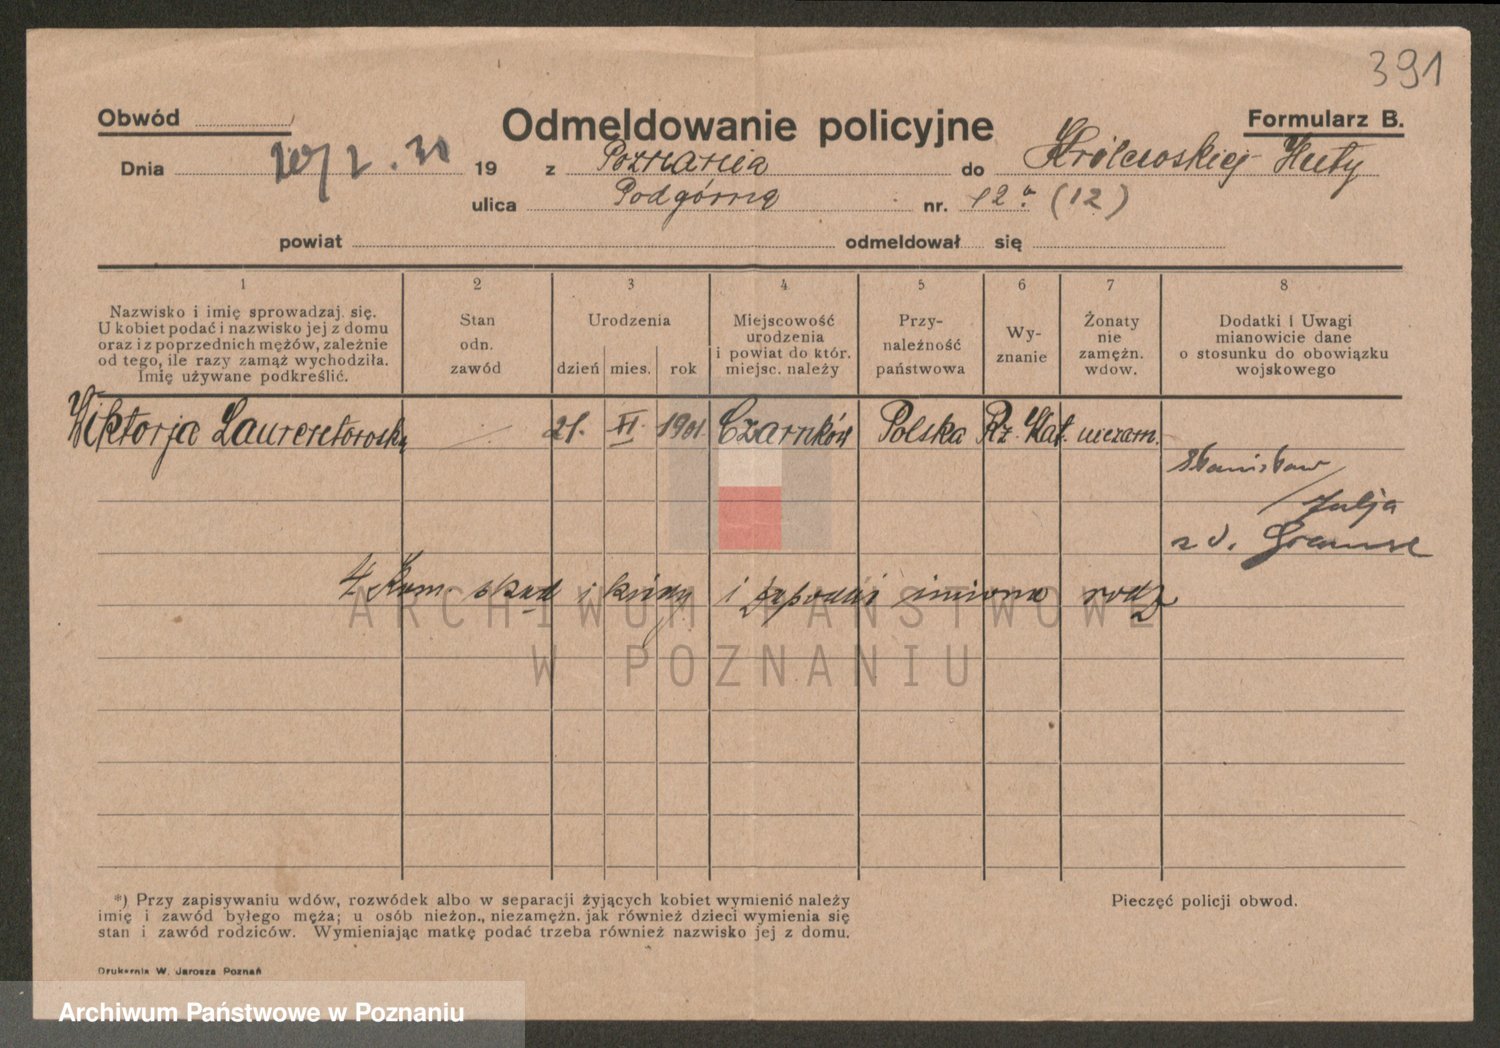 391
Obwód
Odmeldowanie policyjne
Formularz B.
Dnia 19 z Poznania do Królewskiej Huty
ulica Podgórna nr. 12ᵃ (12)
powiat odmeldował się
1 2 3 4 5 6 7 8
Nazwisko i imię sprowadzaj. się.
U kobiet podać i nazwisko jej z domu
oraz i z poprzednich mężów, zależnie
od tego, ile razy zamąż wychodziła.
Imię używane podkreślić.
Stan
odn.
zawód
Urodzenia
dzień mies. rok
Miejscowość
urodzenia
i powiat do któr.
miejsc. należy
Przy-
należność
państwowa
Wy-
znanie
Żonaty
nie
zamężn.
wdow.
Dodatki i Uwagi
mianowicie dane
o stosunku do obowiązku
wojskowego
Wiktorja 21. XI. 1901 Czarnków Polska Rz. Kat. niezam.
Stanisław
Julja
z d.
4 Kom. skąd i kiedy i podać imiona rodz
ARCHIWUM PAŃSTWOWE
W POZNANIU
*) Przy zapisywaniu wdów, rozwódek albo w separacji żyjących kobiet wymienić należy
imię i zawód byłego męża; u osób nieżon., niezamężn. jak również dzieci wymienia się
stan i zawód rodziców. Wymieniając matkę podać trzeba również nazwisko jej z domu.
Pieczęć policji obwod.
Drukarnia W. Jarosza Poznań
Archiwum Państwowe w Poznaniu